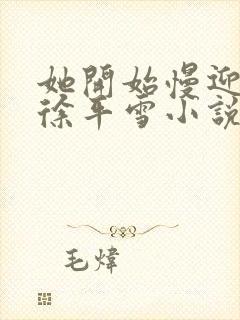 她開始慢迎
徐平雪小說
毛煒